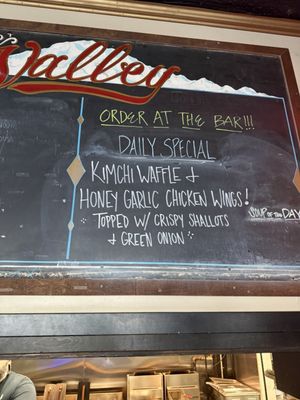 Walley
ORDER AT THE BAR!!!
DAILY SPECIAL
KIMCHI WAFFLE &
HONEY GARLIC CHICKEN WINGS!
TOPPED W/ CRISPY SHALLOTS
& GREEN ONION
SOUP OF THE DAY